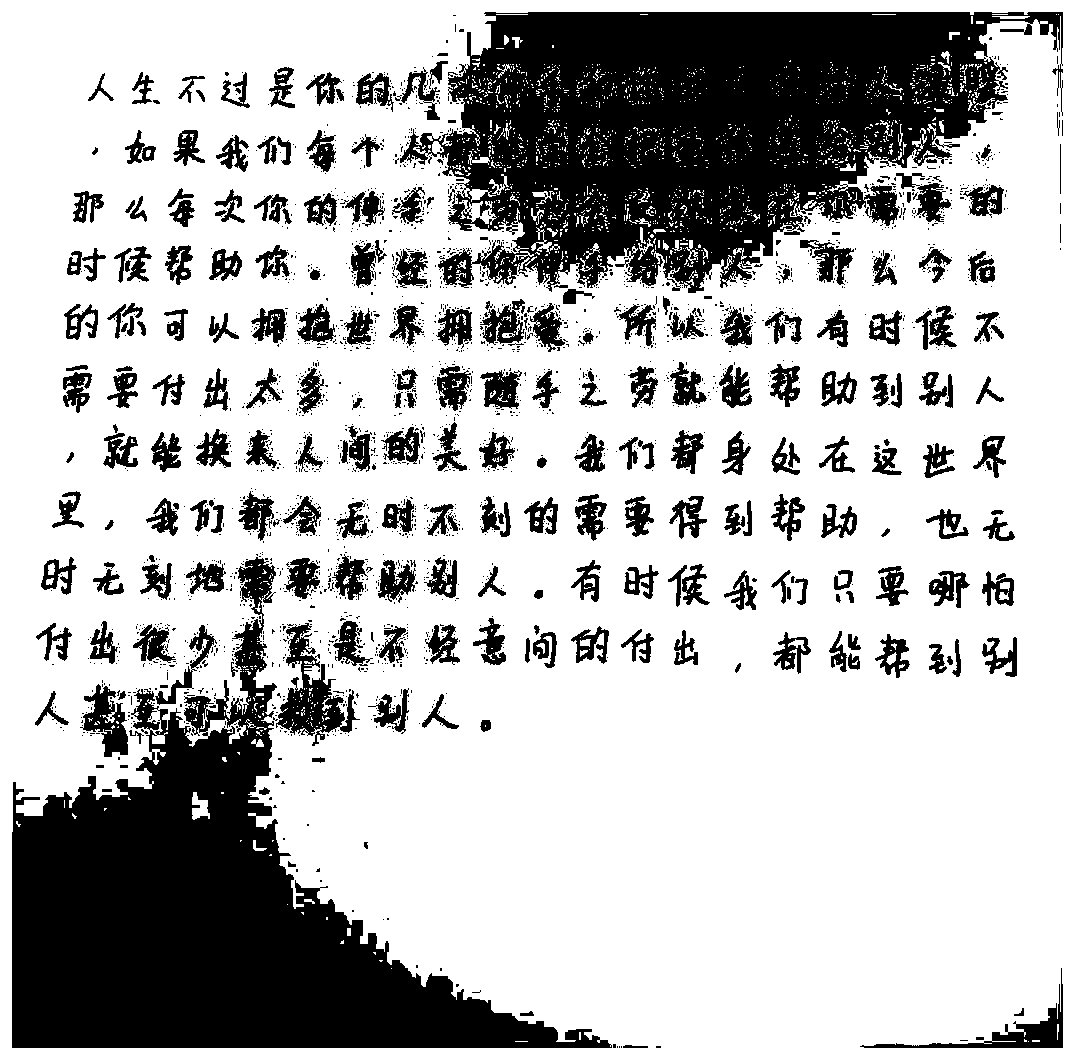 人生不过是你的几
，如果我们每个人都 别人，
那么每次你的伸手之 你需要的
时候帮助你。曾经的你伸手给别人，那么今后
的你可以拥抱世界拥抱爱。所以我们有时候不
需要付出太多，只需随手之劳就能帮助到别人
，就能换来人间的美好。我们都身处在这世界
里，我们都会无时不刻的需要得到帮助，也无
时无刻地需要帮助别人。有时候我们只要哪怕
付出很少甚至是不经意间的付出，都能帮到别
人甚至可以救到别人。